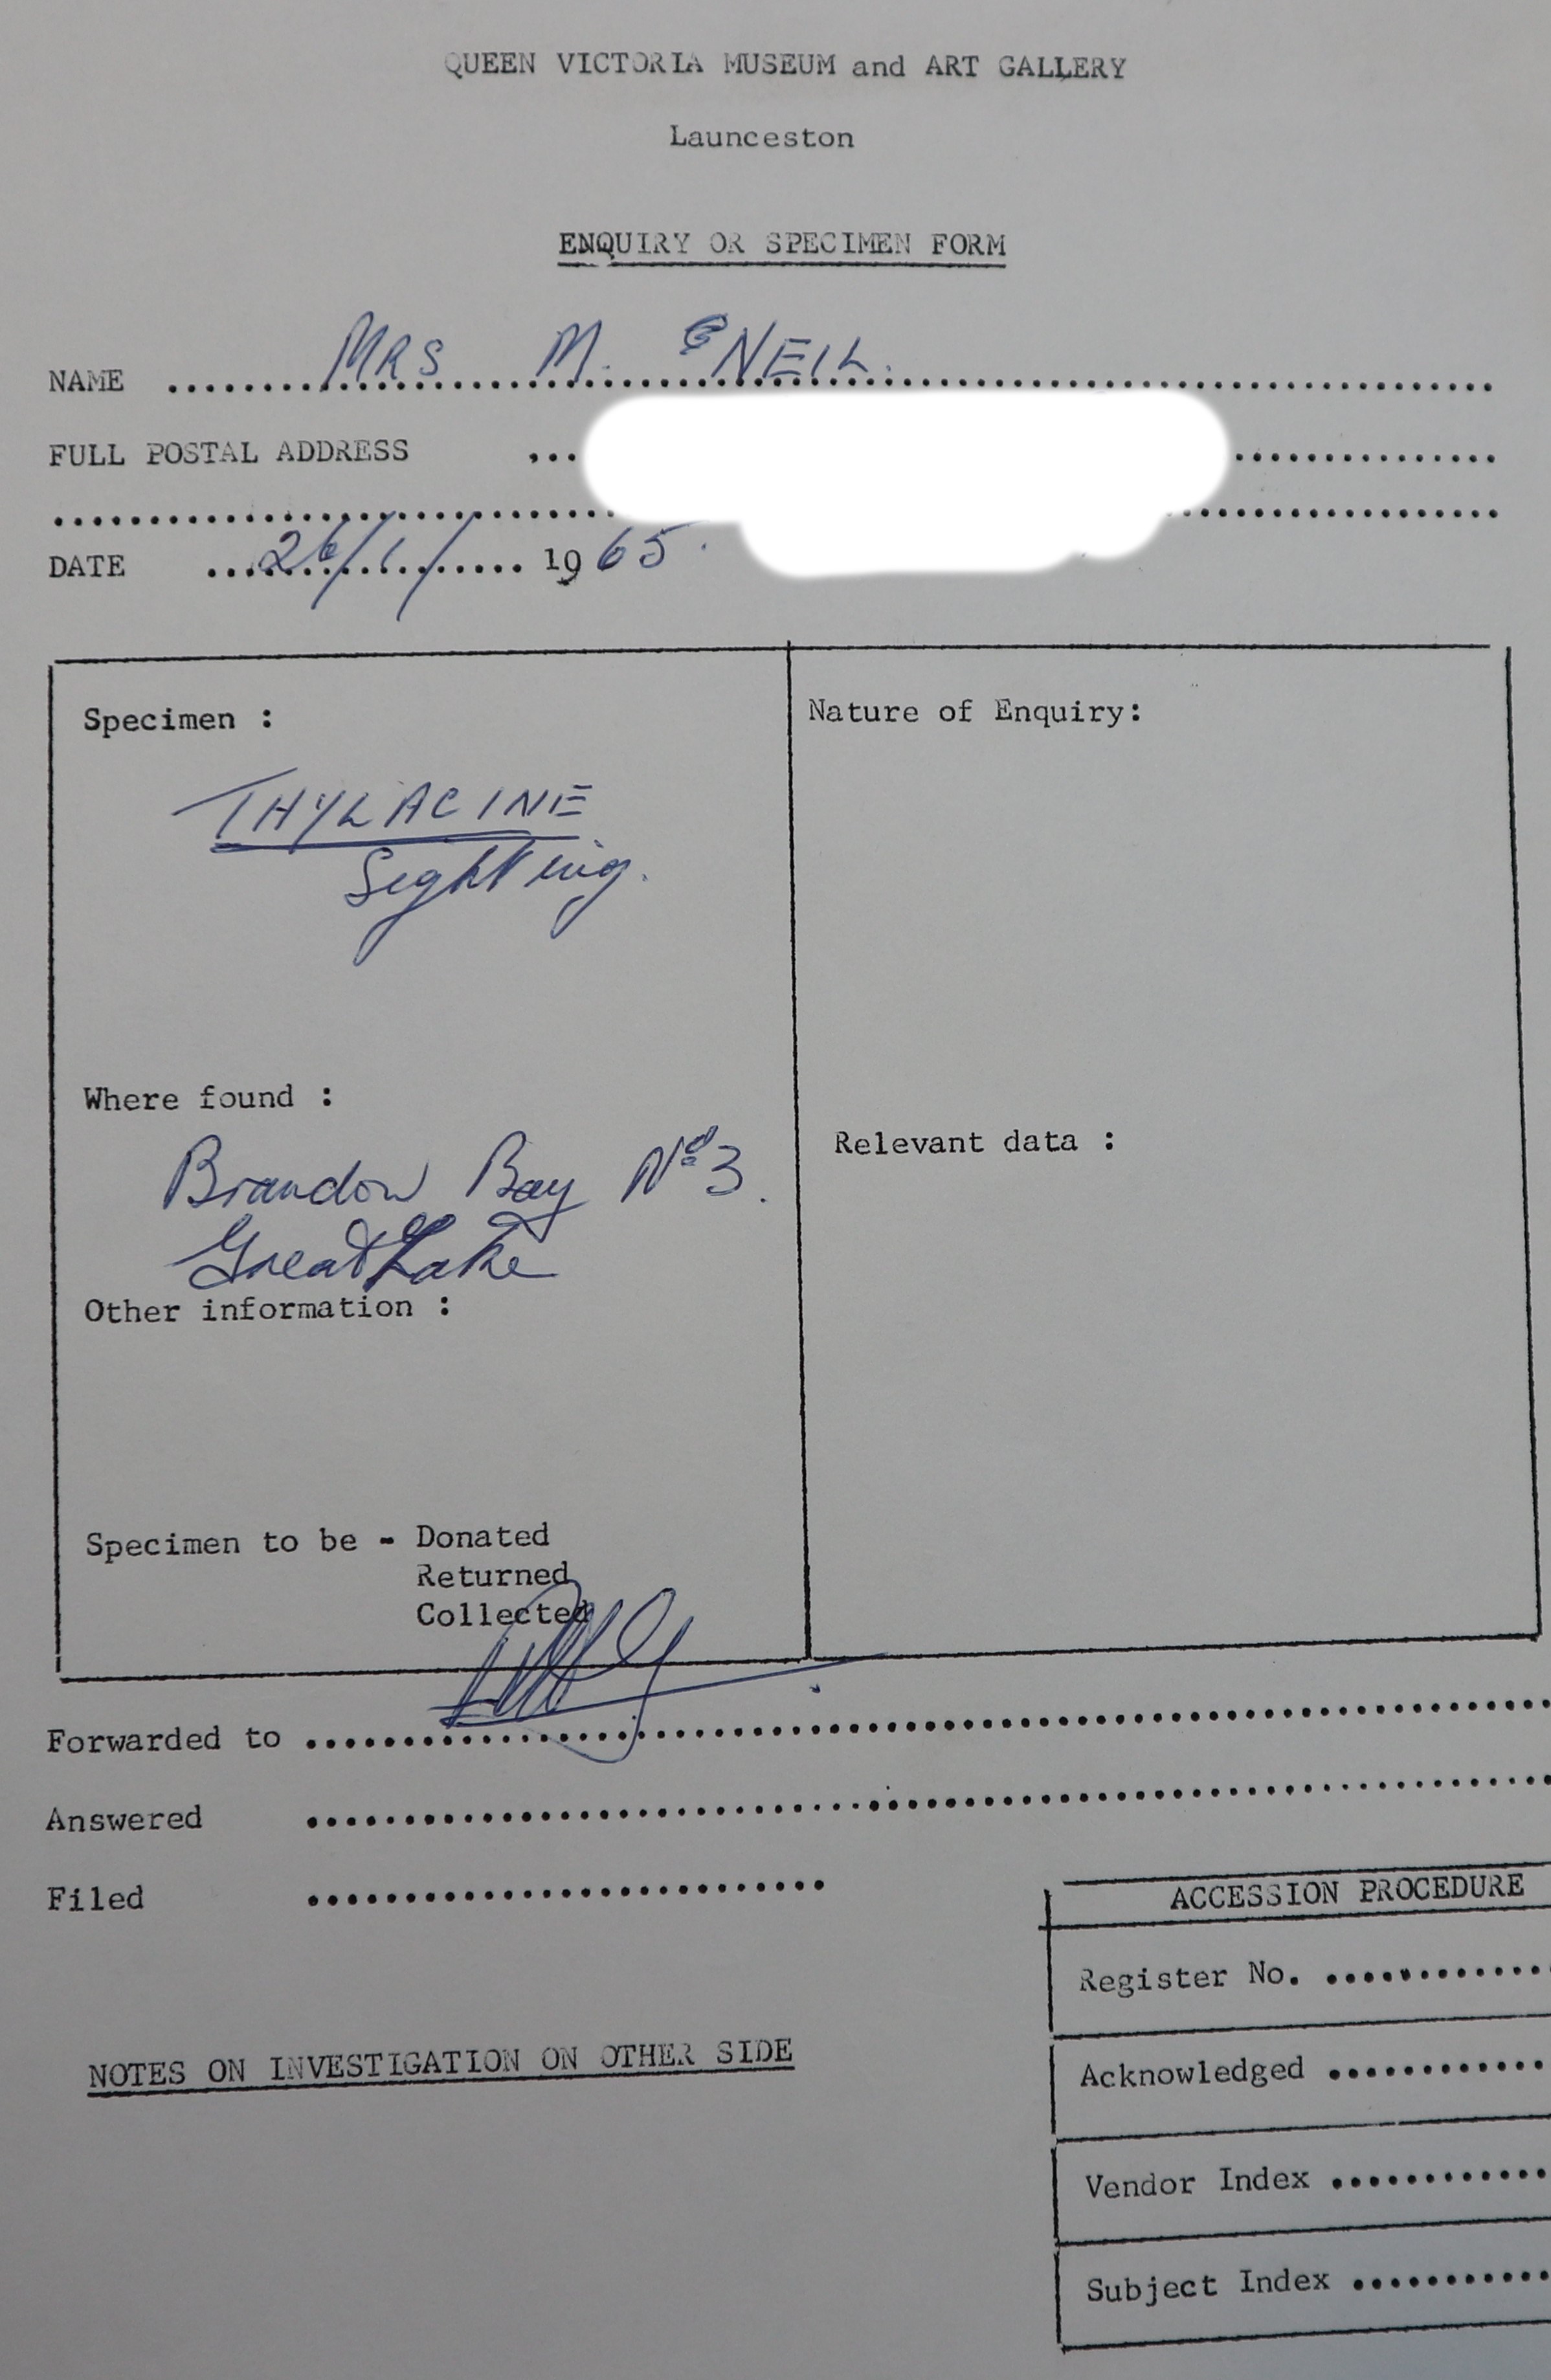 QUEEN VICTORIA MUSEUM and ART GALLERY
Launceston
ENQUIRY OR SPECIMEN FORM
NAME MRS M. O'NEIL.
FULL POSTAL ADDRESS
DATE 26/1/ 1965.
Specimen :
THYLACINE
Sighting.
Where found :
Brandon Bay No 3.
Great Lake
Other information :
Specimen to be - Donated
Returned
Collected
Nature of Enquiry:
Relevant data :
Forwarded to
Answered
Filed
NOTES ON INVESTIGATION ON OTHER SIDE
ACCESSION PROCEDURE
Register No.
Acknowledged
Vendor Index
Subject Index